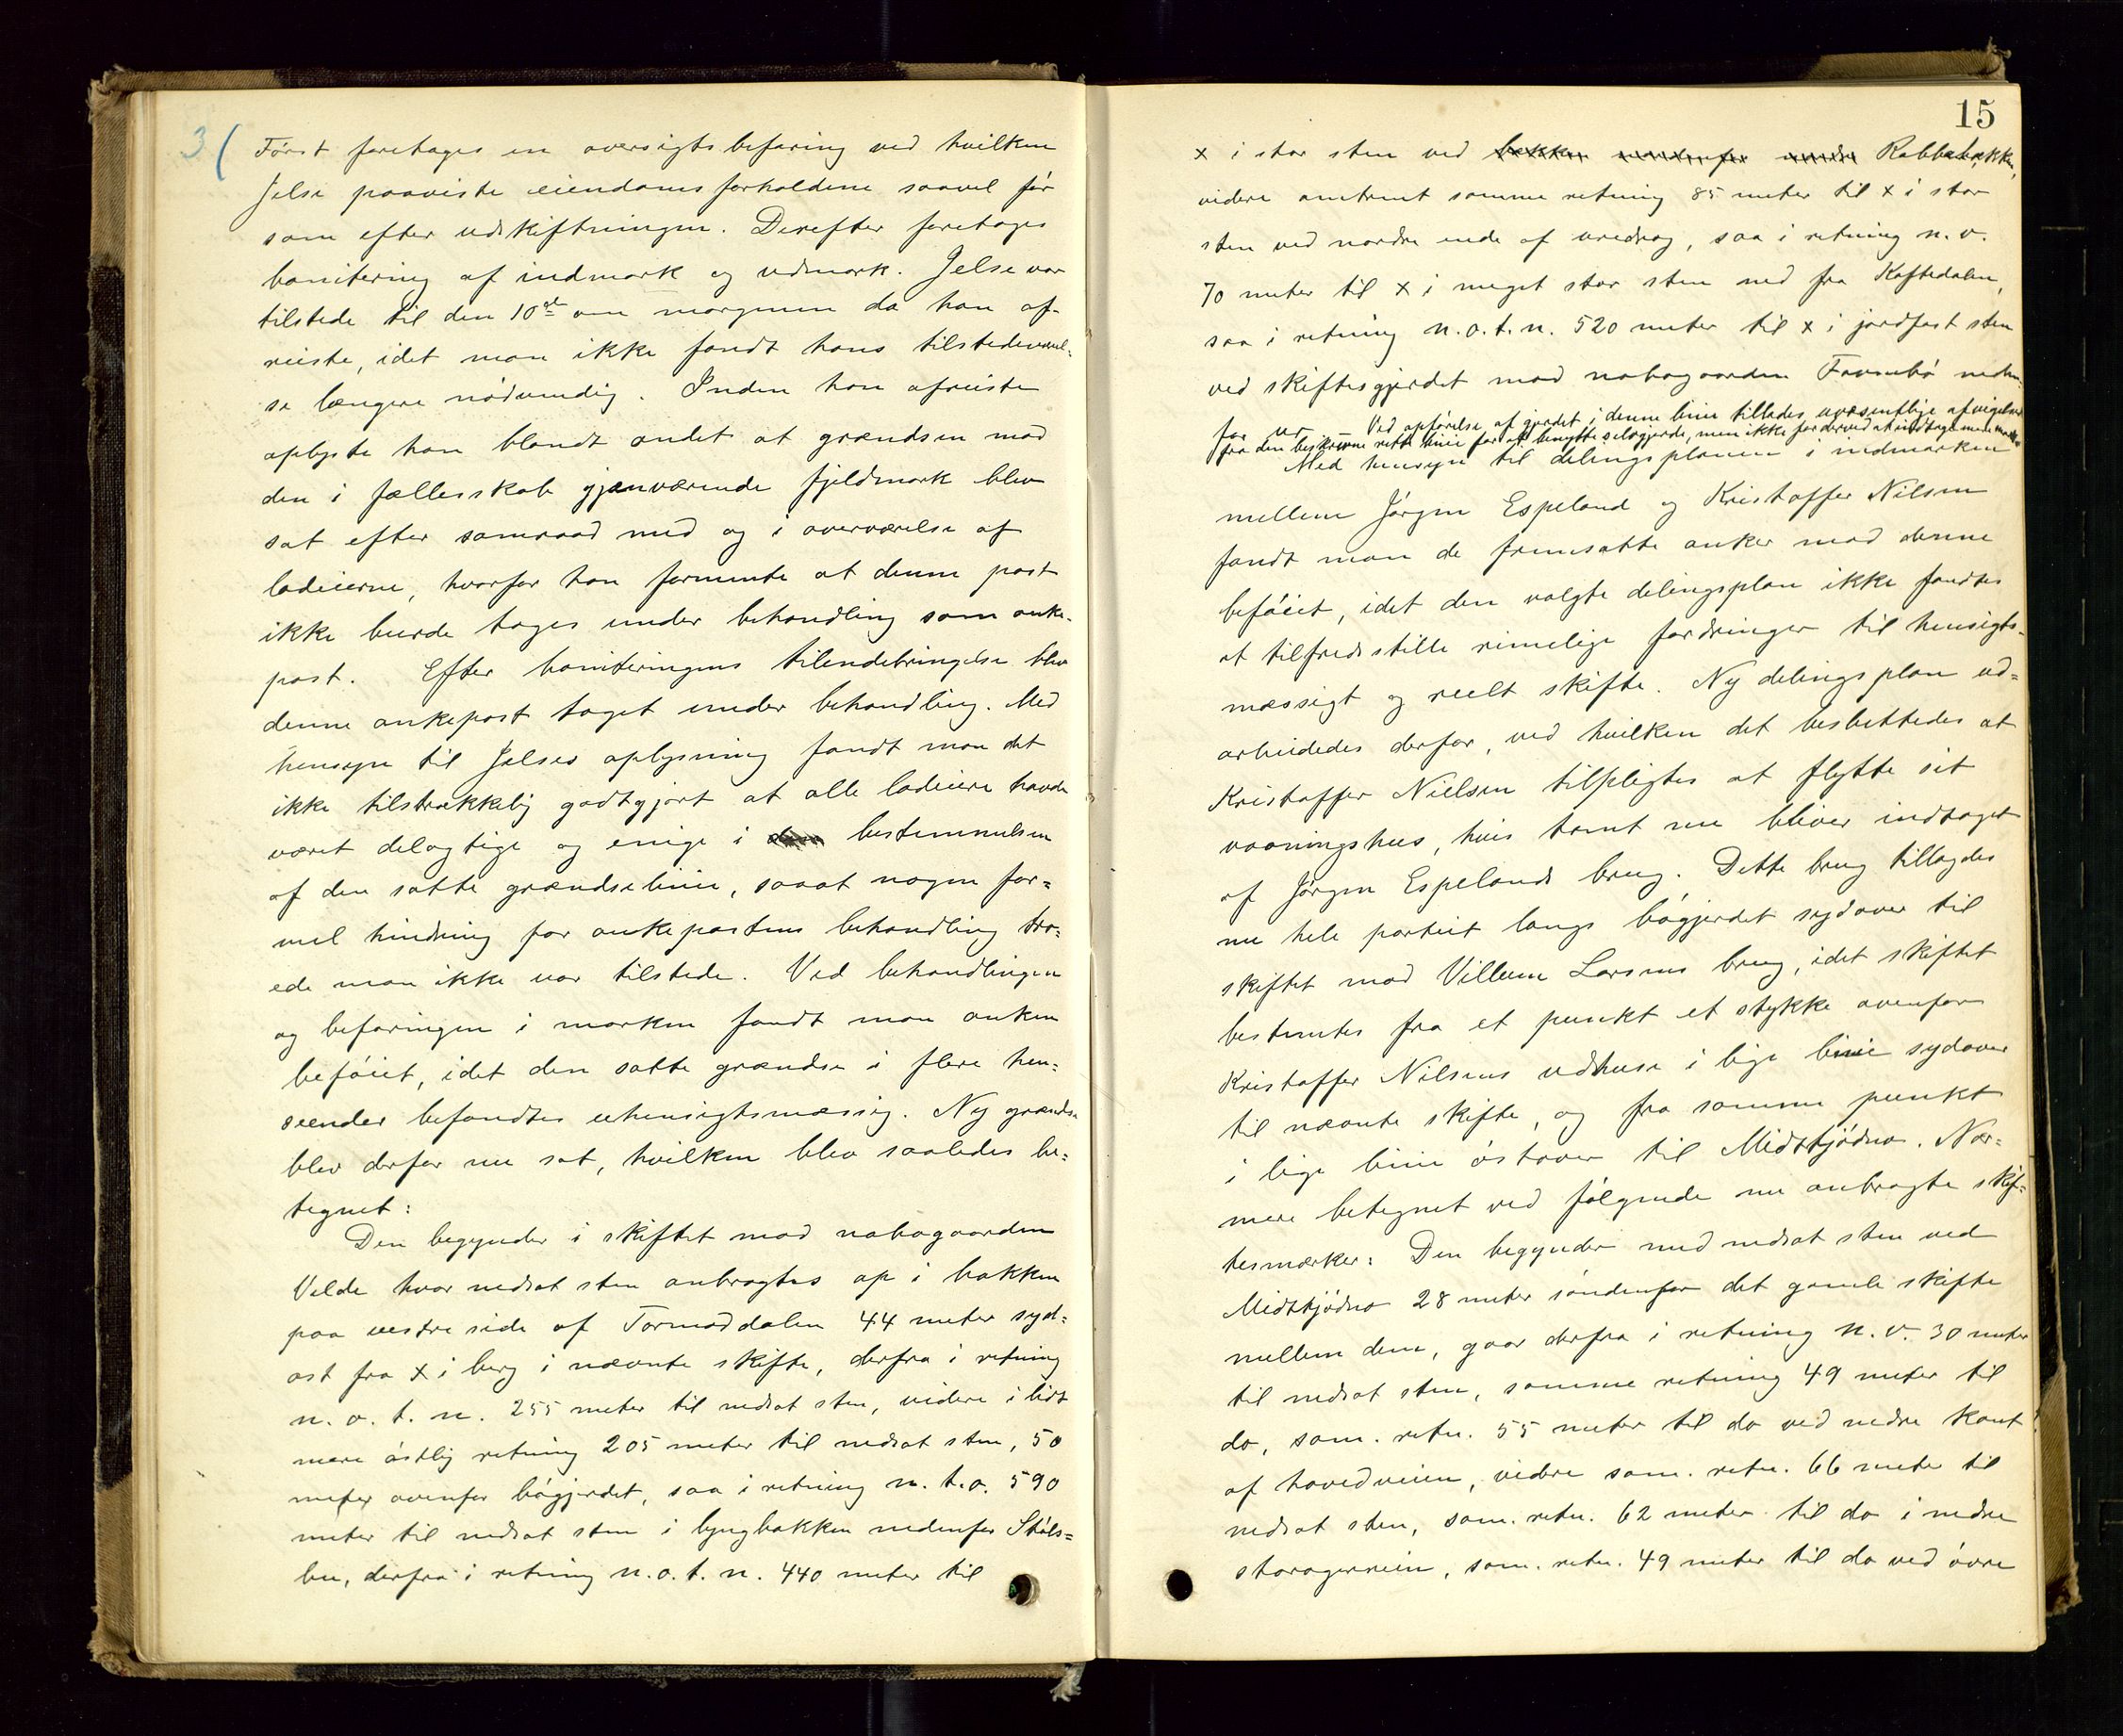 3(
Först foretages en oversigtsbefaring ved hvilken
Jelse paaviste eiendomsforholdene saavel för
som efter udskiftningen. Derefter foretages
bonitering af indmark og udmark. Jelse var
tilstede til den 10de om morgenen da han af-
reiste, idet man ikke fandt hans tilstedeværel-
se længere nödvendig. Inden han afreiste
oplyste han blandt andet at grændsen mod
den i fællesskab gjenværende fjeldmark blev
sat efter samraad med og i overværelse af
lodeierne, hvorfor han formente at denne post
ikke burde tages under behandling som anke-
post. Efter boniteringens tilendebringelse blev
denne ankepost taget under behandling. Med
hensyn til Jelses oplysning fandt man det
ikke tilstrækkelig godtgjort at alle lodeiere havde
været delagtige og enige i bestemmelsen
af den satte grændselinie, saaat nogen for=
mel hindring for ankepostens behandling tro=
ede man ikke var tilstede. Ved behandlingen
og befaringen i marken fandt man anken
beföiet, idet den satte grændse i flere hen=
seender befandtes uhensigtsmæssig. Ny grændse
blev derfor nu sat, hvilken blev saaledes be=
tegnet:
Den begynder i skiftet mod nabogaarden
Velde hvor nedsat sten anbragtes op i bakken
paa vestre side af Tormoddalen 44 meter syd=
ost fra x i berg i nævnte skifte, derfra i retning
n. o. t. n. 255 meter til nedsat sten, videre i lidt
mere östlig retning 205 meter til nedsat sten, 50
meter ovenfor bögjerdet, saa i retning n. t. o. 590
meter til nedsat sten i lyngbakken nedenfor Stöls=
bu, derfra i retning n. o. t. n. 440 meter til
15
x i stor sten ved Rabbebækken,
videre omtrent samme retning 85 meter til x i stor
sten ved nordre ende af uredrag, saa i retning n. v.
70 meter til x i meget stor sten ned fra Koftedalen,
saa i retning n. o. t. n. 520 meter til x i jordfast sten
ved skiftesgjerdet mod nabogaarden Favrebö neden-
for ur – Ved opförelse af gjerdet i denne linie tillades uvæsentlige afvigelser
fra den beskrevne rette linie for at benytte selvgjerde, men ikke for derved at indtage mere mark
Med hensyn til delingsplanen i indmarken
mellem Jörgen Espeland og Kristoffer Nilsen
fandt man de fremsatte anker mod denne
beföiet, idet den valgte delingsplan ikke fandtes
at tilfredsstille rimelige fordringer til hensigts-
mæssigt og reelt skifte. Ny delingsplan ud=
arbeidedes derfor, ved hvilken det besluttedes at
Kristoffer Nielsen tilpligtes at flytte sit
vaaningshus, hvis tomt nu bliver indtaget
af Jörgen Espelands brug. Dette brug tillagdes
nu hele partiet langs bögjerdet sydover til
skiftet mod Villum Larsens brug, idet skiftet
bestemtes fra et punkt et stykke ovenfor
Kristoffer Nilsens udhuse i lige linie sydover
til nævnte skifte, og fra samme punkt
i lige linie östover til Midttjödno. Nær=
mere betegnet ved fölgende nu anbragte skif=
tesmærker: Den begynder med nedsat sten ved
Midttjödno 28 meter söndenfor det gamle skifte
mellem dem, gaar derfra i retning n. v. 30 meter
til nedsat sten, samme retning 49 meter til
do, sam. retn. 55 meter til do ved nedre kant
af hovedveien, videre sam. retn. 66 meter til
nedsat sten, sam. retn. 62 meter til do i nedre
storagerrein, sam. retn. 49 meter til do ved övre